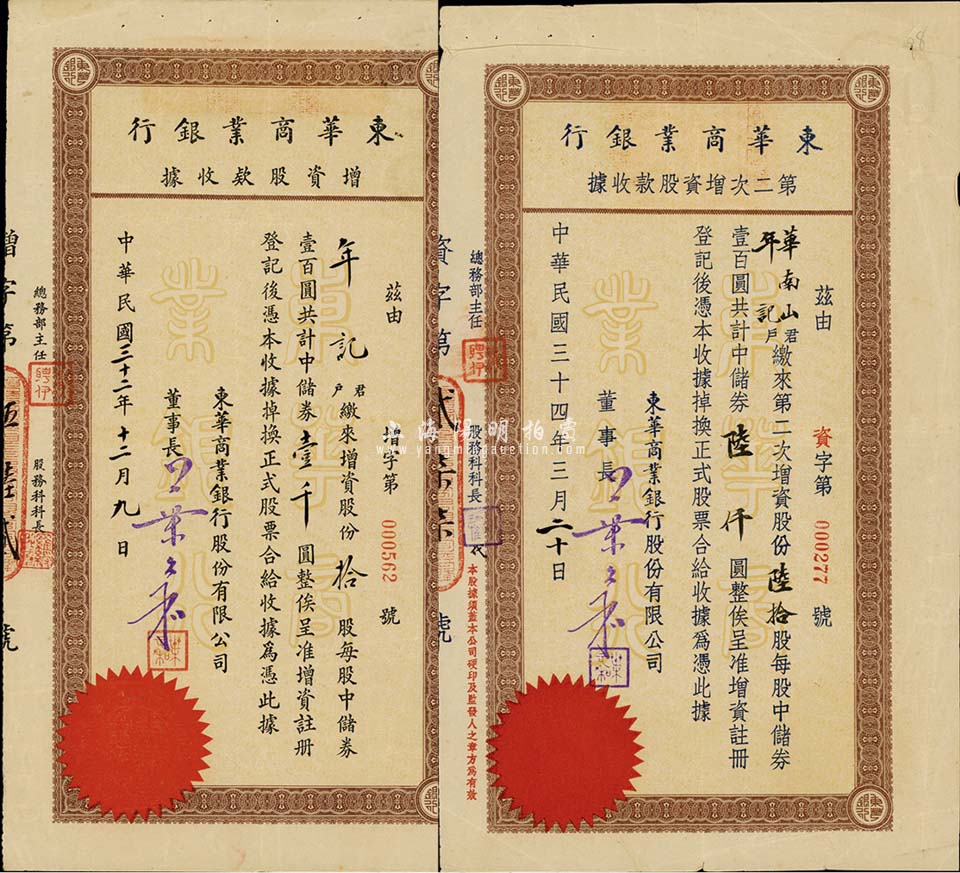 東華商業銀行
第二次增資股款收據
茲由
資字第 000277 號
華南山
年記 君戶 繳來第二次增資股份陸拾股每股中儲券
壹百圓共計中儲券陸仟圓整俟呈准增資註冊
登記後憑本收據掉換正式股票合給收據為憑此據
東華商業銀行股份有限公司
董事長
中華民國三十四年三月二十日
總務部主任
股務科科長
本股據須蓋本公司硬印及監發人之章方為有效
資字第貳柒柒號
東華
銀行
東華商業銀行
增資股款收據
茲由
增字第 000562 號
年記 君戶 繳來增資股份拾股每股中儲券
壹百圓共計中儲券壹千圓整俟呈准增資註冊
登記後憑本收據掉換正式股票合給收據為憑此據
東華商業銀行股份有限公司
董事長
中華民國三十二年十二月九日
總務部主任
股務科科長
增字第伍陸貳號
上海陽明拍賣
www.yangmingauction.com